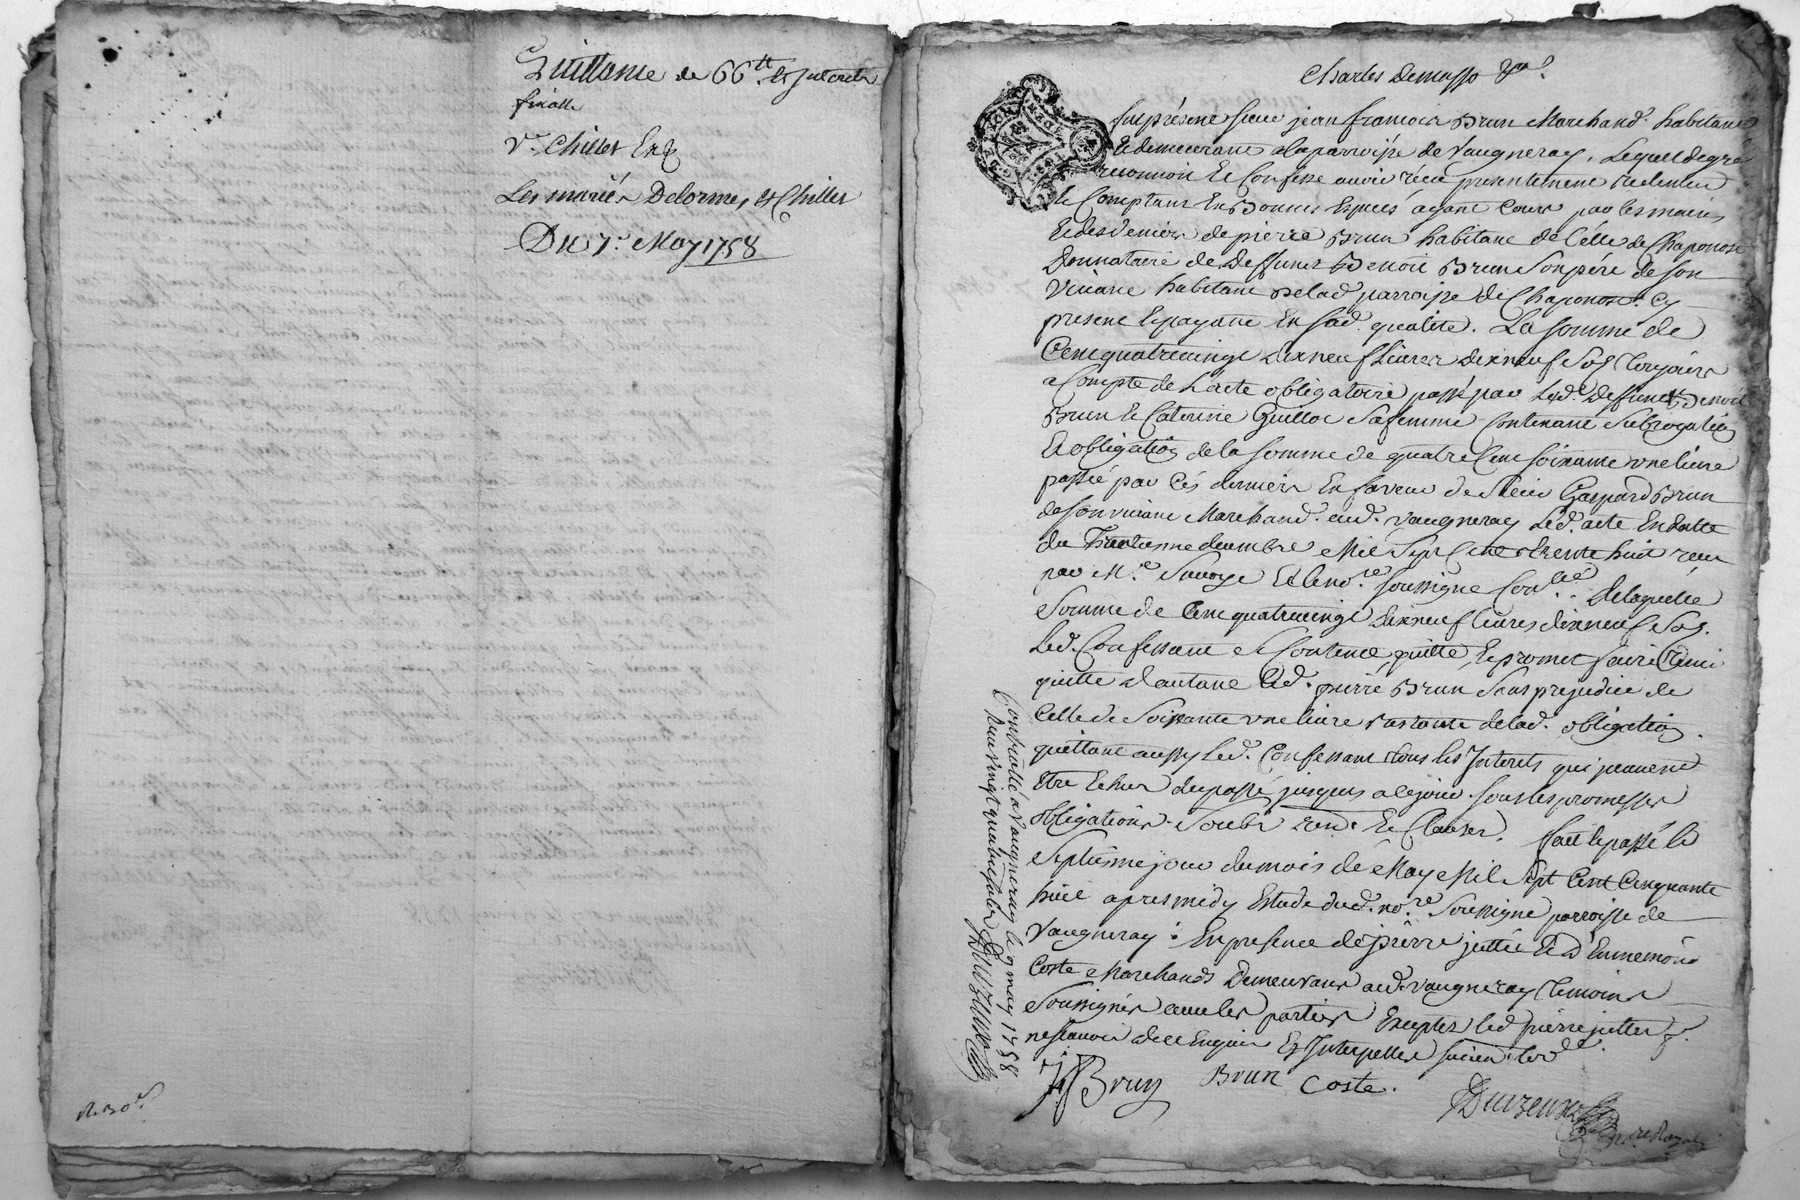 Quittance de 66ᵗᵗ et Interets
finalle
Vᵉ Chillet
Les mariés Delorme, et Chillet
Du 7ᵉ May 1758
R. 30ˢ
Charles Demasso
fut présent sieur jean francois Brun Marchand habitant
et demeurant a la parroisse de Vaugneray, Lequel de gré
reconnoit et Confesse avoir receu presentement reelement
et Comptant En Bonnes Especés ayant Cours par les mains
et des deniers de pierre Brun habitant de Celle de Chaponost
Donnataire de Deffunct Benoit Brun Son pére de son
Vivant habitant de lad. parroisse de Chaponost Cy
present et payant En sad. qualité. La somme de
Cent quatre vingt dix neuf Livres dix neuf Sols toujours
a Compte de L'acte obligatoire passé par Led. deffunct Benoit
Brun et Caterine Guillot Sa femme Contenant Subrogation
et obligation de la somme de quatre Cent soixante une livre
passée par Cés derniers En faveur de Sieur Gaspard Brun
de son vivant Marchand aud. Vaugneray Led. acte En datte
du trentiemme decembre Mil Sept Cent trente huit receu
par Mᵉ Sauoye Et le noʳᵉ soussigné Conᵗˡᵉ. De laquelle
Somme de Cent quatre vingt dix neuf livres dix neuf Sols.
Led. Confessant se Contente, quitte, et promet faire tenir
quitte d'autant Led. pierre Brun Sans prejudice de
Celle de Soixante une livre restante de lad. obligation.
quittant aussy Led. Confessant tous les Interets qui peuvent
être Echus du passé jusques a ce jour sous les promesses
obligations Soubs renon. et Clauses. fait et passé le
Septiéme jour du mois de May Mil Sept Cent Cinquante
huit apres midy Etude dud. noʳᵉ Soussigné parroisse de
Vaugneray: En presence de pierre juttet et d'Ennemond
Coste Marchands Demeurans aud. Vaugneray temoins
Soussignés avec les parties Exeptes led pierre juttet p.
ne sçavoir de ce Enquis Et Interpellés suivant lord.ᶜᵉ
JfBrun Brun Coste.
Duvzeuxe
noʳᵉ Royal
Controllé a Vaugneray le 9 may 1758
Receu vingt quatre sols